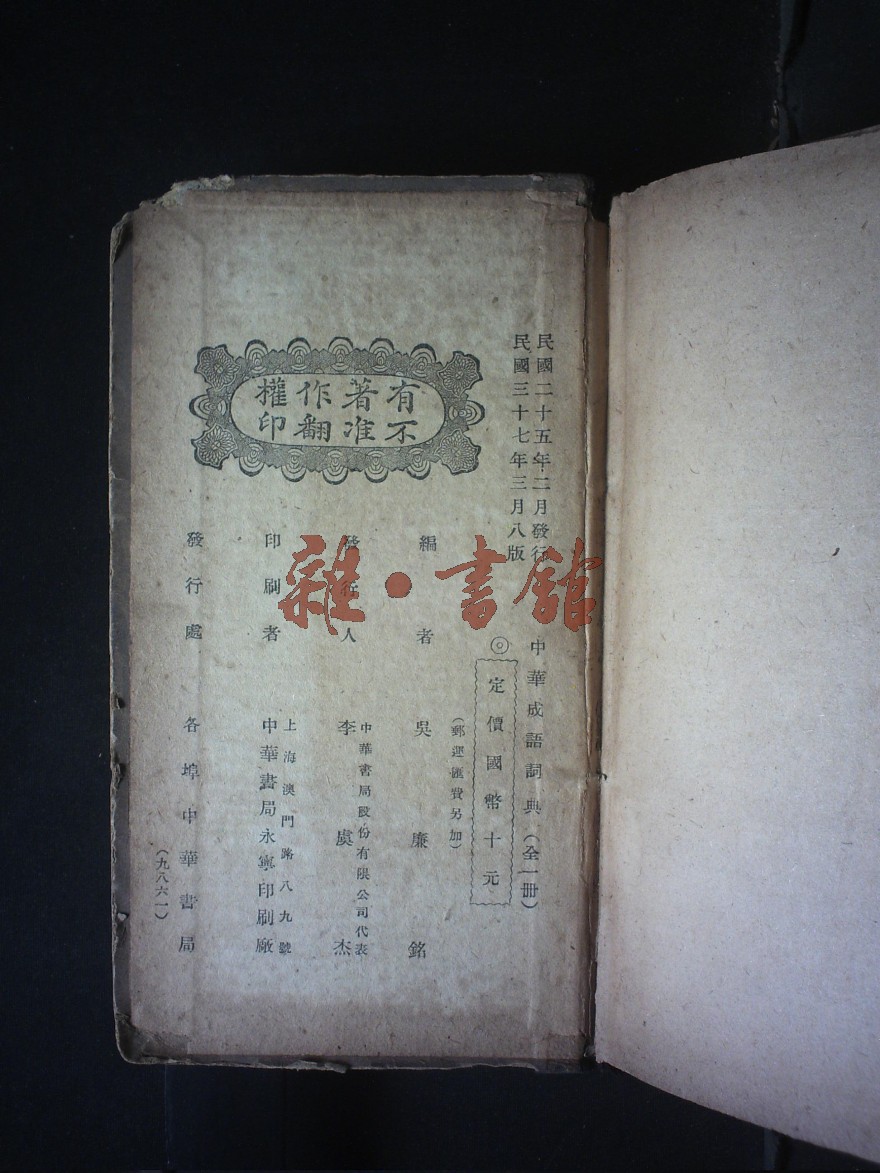 民國二十五年二月發行
民國三十七年三月八版
中華成語詞典（全一冊）
◎定價國幣十元
（郵運匯費另加）
有著作權
不准翻印
編者 吳廉銘
發行人 李虞杰
中華書局股份有限公司代表
印刷者
上海澳門路八九號
中華書局永寧印刷廠
發行處 各埠中華書局
（九八六一）
雜·書館